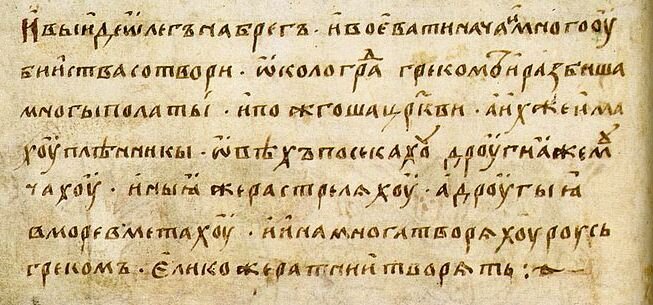 И выиде ѡлегъ на брегъ · и воевати нача и много оу
бииства сотвори · ѡколо граⷣа грекомъ и разбиша
многы полаты · и пожгоша црⷦ҇ви · а ихже има
хоу плѣнникы · ѡвѣхъ посекахоу дроугиꙗ же моу
чахоу · иныꙗ же растреляхоу · а дроугыꙗ
в море вметахоу · и ина многа творяхоу роусь
грекомъ · елико же ратнии творять :~